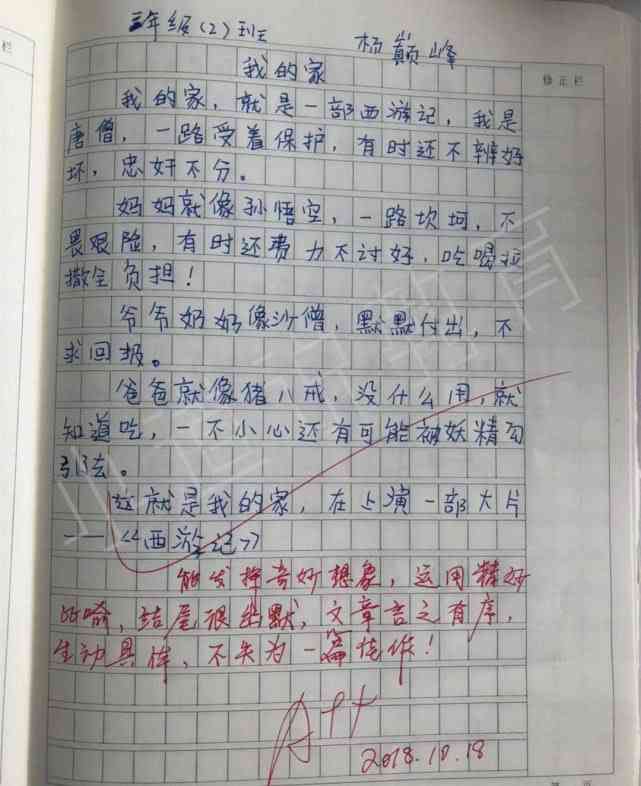 三年级(2)班
杨巅峰
修正栏
栏
我的家
我的家，就是一部西游记，我是
唐僧，一路受着保护，有时还不辨好
坏，忠奸不分。
妈妈就像孙悟空，一路坎坷，不
畏艰险，有时还费力不讨好，吃喝拉
撒全负担！
爷爷奶奶像沙僧，默默付出，不
求回报。
爸爸就像猪八戒，没什么用，就
知道吃，一不小心还有可能被妖精勾
引去。
这就是我的家，在上演一部大片
——《西游记》
能发挥奇妙想象，运用精妙
比喻，结尾很幽默，文章言之有序，
生动具体，不失为一篇佳作！
A++
2018.10.18